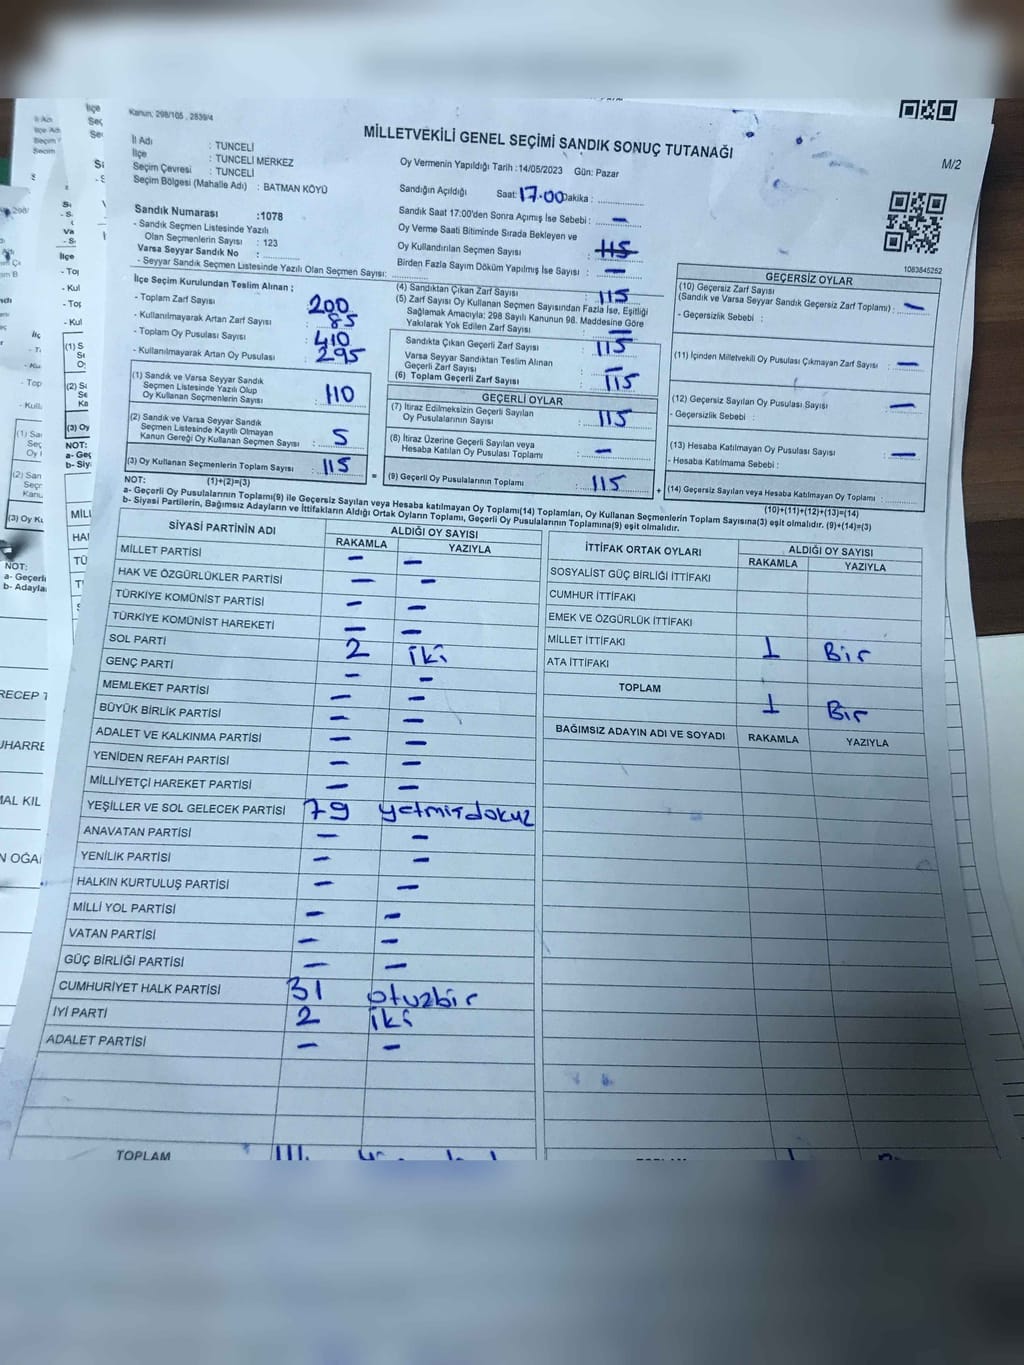 Kanun; 298/105 , 2839/4
MİLLETVEKİLİ GENEL SEÇİMİ SANDIK SONUÇ TUTANAĞI
M/2
İl Adı : TUNCELİ
İlçe : TUNCELİ MERKEZ
Seçim Çevresi : TUNCELİ
Seçim Bölgesi (Mahalle Adı) : BATMAN KÖYÜ
Oy Vermenin Yapıldığı Tarih : 14/05/2023 Gün: Pazar
Sandığın Açıldığı Saat: 17.00 Dakika : ..............
Sandık Saat 17:00'den Sonra Açılmış İse Sebebi : —
Oy Verme Saati Bitiminde Sırada Bekleyen ve
Oy Kullandırılan Seçmen Sayısı : 115
Birden Fazla Sayım Döküm Yapılmış İse Sayısı : —
Sandık Numarası :1078
- Sandık Seçmen Listesinde Yazılı
Olan Seçmenlerin Sayısı : 123
Varsa Seyyar Sandık No : ..............
- Seyyar Sandık Seçmen Listesinde Yazılı Olan Seçmen Sayısı: ..............
1083845252
İlçe Seçim Kurulundan Teslim Alınan ;
- Toplam Zarf Sayısı : 200
- Kullanılmayarak Artan Zarf Sayısı : 85
- Toplam Oy Pusulası Sayısı : 410
- Kullanılmayarak Artan Oy Pusulası : 295
(1) Sandık ve Varsa Seyyar Sandık
Seçmen Listesinde Yazılı Olup
Oy Kullanan Seçmenlerin Sayısı : 110
(2) Sandık ve Varsa Seyyar Sandık
Seçmen Listesinde Kayıtlı Olmayan
Kanun Gereği Oy Kullanan Seçmen Sayısı : 5
(3) Oy Kullanan Seçmenlerin Toplam Sayısı : 115
(4) Sandıktan Çıkan Zarf Sayısı : 115
(5) Zarf Sayısı Oy Kullanan Seçmen Sayısından Fazla İse, Eşitliği
Sağlamak Amacıyla; 298 Sayılı Kanunun 98. Maddesine Göre
Yakılarak Yok Edilen Zarf Sayısı : —
Sandıkta Çıkan Geçerli Zarf Sayısı : 115
Varsa Seyyar Sandıktan Teslim Alınan
Geçerli Zarf Sayısı : —
(6) Toplam Geçerli Zarf Sayısı : 115
GEÇERLİ OYLAR
(7) İtiraz Edilmeksizin Geçerli Sayılan
Oy Pusulalarının Sayısı : 115
(8) İtiraz Üzerine Geçerli Sayılan veya
Hesaba Katılan Oy Pusulası Toplamı : —
= (9) Geçerli Oy Pusulalarının Toplamı : 115
GEÇERSİZ OYLAR
(10) Geçersiz Zarf Sayısı
(Sandık ve Varsa Seyyar Sandık Geçersiz Zarf Toplamı) : —
- Geçersizlik Sebebi :
(11) İçinden Milletvekili Oy Pusulası Çıkmayan Zarf Sayısı : —
(12) Geçersiz Sayılan Oy Pusulası Sayısı : —
- Geçersizlik Sebebi :
(13) Hesaba Katılmayan Oy Pusulası Sayısı : —
- Hesaba Katılmama Sebebi :
+ (14) Geçersiz Sayılan veya Hesaba Katılmayan Oy Toplamı : ..............
NOT: (1)+(2)=(3)
(10)+(11)+(12)+(13)=(14)
a- Geçerli Oy Pusulalarının Toplamı(9) ile Geçersiz Sayılan veya Hesaba katılmayan Oy Toplamı(14) Toplamları, Oy Kullanan Seçmenlerin Toplam Sayısına(3) eşit olmalıdır. (9)+(14)=(3)
b- Siyasi Partilerin, Bağımsız Adayların ve İttifakların Aldığı Ortak Oyların Toplamı, Geçerli Oy Pusulalarının Toplamına(9) eşit olmalıdır.
SİYASİ PARTİNİN ADI ALDIĞI OY SAYISI
RAKAMLA YAZIYLA
MİLLET PARTİSİ — —
HAK VE ÖZGÜRLÜKLER PARTİSİ — —
TÜRKİYE KOMÜNİST PARTİSİ — —
TÜRKİYE KOMÜNİST HAREKETİ — —
SOL PARTİ 2 iki
GENÇ PARTİ — —
MEMLEKET PARTİSİ — —
BÜYÜK BİRLİK PARTİSİ — —
ADALET VE KALKINMA PARTİSİ — —
YENİDEN REFAH PARTİSİ — —
MİLLİYETÇİ HAREKET PARTİSİ — —
YEŞİLLER VE SOL GELECEK PARTİSİ 79 yetmişdokuz
ANAVATAN PARTİSİ — —
YENİLİK PARTİSİ — —
HALKIN KURTULUŞ PARTİSİ — —
MİLLİ YOL PARTİSİ — —
VATAN PARTİSİ — —
GÜÇ BİRLİĞİ PARTİSİ — —
CUMHURİYET HALK PARTİSİ 31 otuzbir
İYİ PARTİ 2 iki
ADALET PARTİSİ — —
TOPLAM
İTTİFAK ORTAK OYLARI ALDIĞI OY SAYISI
RAKAMLA YAZIYLA
SOSYALİST GÜÇ BİRLİĞİ İTTİFAKI
CUMHUR İTTİFAKI
EMEK VE ÖZGÜRLÜK İTTİFAKI
MİLLET İTTİFAKI 1 Bir
ATA İTTİFAKI
TOPLAM 1 Bir
BAĞIMSIZ ADAYIN ADI VE SOYADI RAKAMLA YAZIYLA